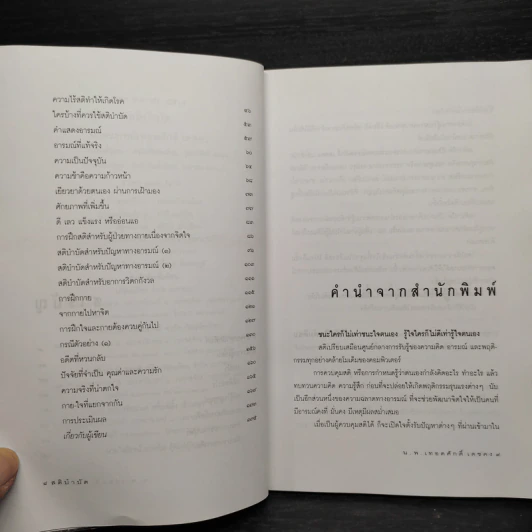 ความไร้สติทำให้เกิดโรค
ใครบ้างที่ควรใช้สติบำบัด
คำแสดงอารมณ์
อารมณ์ที่แท้จริง
ความเป็นปัจจุบัน
ความช้าคือความก้าวหน้า
เยียวยาด้วยตนเอง ผ่านการเฝ้ามอง
ศักยภาพที่เพิ่มขึ้น
ดี เลว แข็งแรง หรืออ่อนแอ
การฝึกสติสำหรับผู้ป่วยทางกายเนื่องจากจิตใจ
สติบำบัดสำหรับปัญหาทางอารมณ์ (๑)
สติบำบัดสำหรับปัญหาทางอารมณ์ (๒)
สติบำบัดสำหรับอาการวิตกกังวล
การฝึกกาย
จากกายไปหาจิต
การฝึกใจและกายต้องควบคู่กันไป
กรณีตัวอย่าง (๑)
อดีตที่หวนกลับ
ปัจจัยที่จำเป็น คุณค่าและความรัก
ความจริงที่น่าตกใจ
กาย-ใจที่แยกจากกัน
การประเมินผล
เกี่ยวกับผู้เขียน
๔ สติบำบัด
คำนำจากสำนักพิมพ์
ชนะใครก็ไม่เท่าชนะใจตนเอง รู้ใจใครก็ไม่ดีเท่ารู้ใจตนเอง
สติเปรียบเสมือนศูนย์กลางการรับรู้ของความคิด อารมณ์ และพฤติ-
กรรมทุกอย่างคล้ายโมเด็มของคอมพิวเตอร์
การควบคุมสติ หรือการกำหนดรู้ว่าตนเองกำลังคิดอะไร ทำอะไร แล้ว
ทบทวนความคิด ความรู้สึก ก่อนที่จะปล่อยให้เกิดพฤติกรรมรุนแรงต่างๆ นับ
เป็นอีกส่วนหนึ่งของความฉลาดทางอารมณ์ ที่จะช่วยพัฒนาจิตใจให้เป็นคนที่
มีอารมณ์คงที่ มั่นคง มีเหตุมีผลสม่ำเสมอ
เมื่อเป็นผู้ควบคุมสติได้ ก็จะเปิดใจตั้งรับปัญหาต่างๆ ที่ผ่านเข้ามาใน
น.พ.เทอดศักดิ์ เดชคง ๕